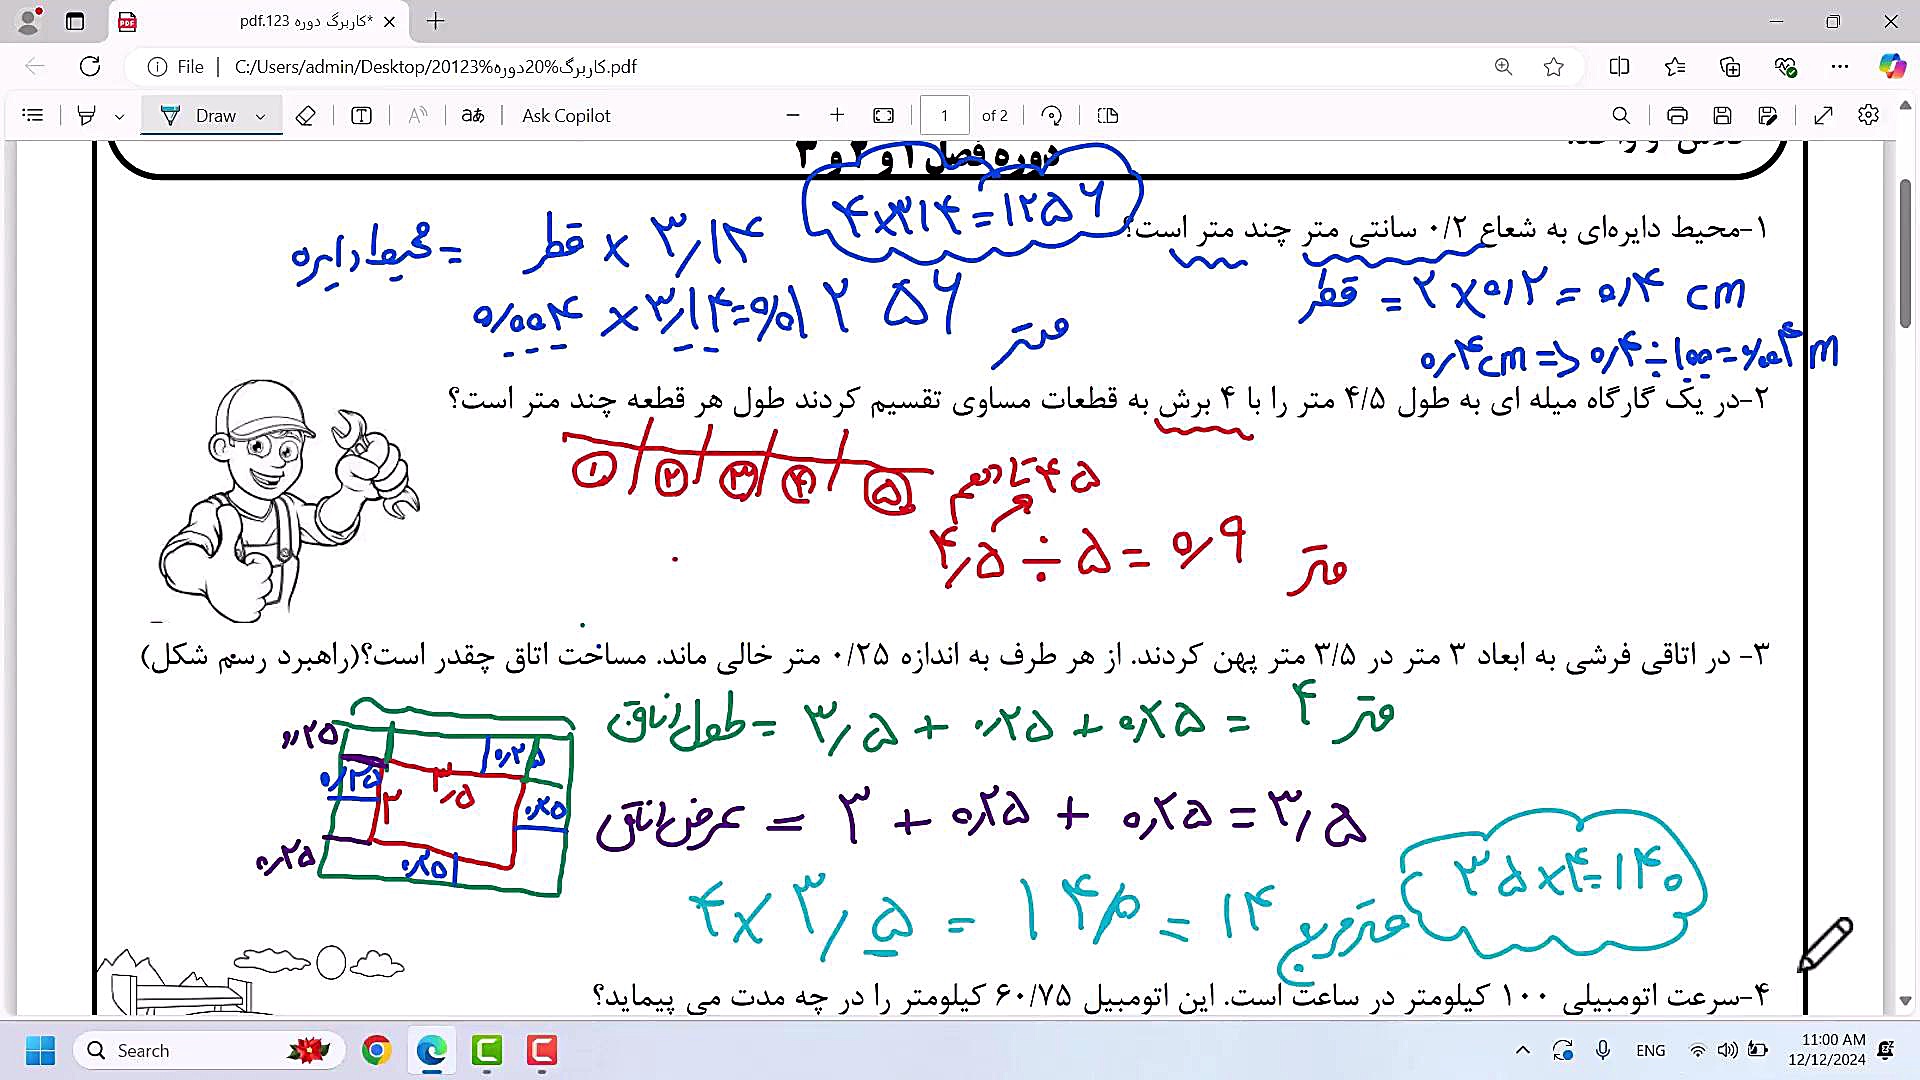 *کاربرگ دوره 123.pdf
File
C:/Users/admin/Desktop/20123%کاربرگ%20دوره.pdf
Draw
Ask Copilot
1 of 2
دوره فصل ۱ و ۲ و ۳
۱-محیط دایره‌ای به شعاع ۰/۲ سانتی متر چند متر است؟
۴×۳۱۴=۱۲۵۶
محیط دایره = قطر × ۳٫۱۴
قطر = ۲×۰٫۲=۰٫۴ cm
۰٫۰۰۴ × ۳٫۱۴=۰٫۰۱۲۵۶ متر
۰٫۴cm => ۰٫۴÷۱۰۰=۰٫۰۰۴ m
۲-در یک گارگاه میله ای به طول ۴/۵ متر را با ۴ برش به قطعات مساوی تقسیم کردند طول هر قطعه چند متر است؟
۱ ۲ ۳ ۴ ۵
۴۵ تا دهم
۴٫۵ ÷ ۵ = ۰٫۹ متر
۳- در اتاقی فرشی به ابعاد ۳ متر در ۳/۵ متر پهن کردند. از هر طرف به اندازه ۰/۲۵ متر خالی ماند. مساخت اتاق چقدر است؟(راهبرد رسم شکل)
طول اتاق = ۳٫۵ + ۰٫۲۵ + ۰٫۲۵ = ۴ متر
۰٫۲۵ ۰٫۲۵
۰٫۲۵ ۳٫۵
۳ ۰٫۲۵
۰٫۲۵ ۰٫۲۵
عرض اتاق = ۳ + ۰٫۲۵ + ۰٫۲۵ = ۳٫۵
۳۵×۴=۱۴۰
۴×۳٫۵ = ۱۴٫۰ = ۱۴ مترمربع
۴-سرعت اتومبیلی ۱۰۰ کیلومتر در ساعت است. این اتومبیل ۶۰/۷۵ کیلومتر را در چه مدت می پیماید؟
Search
ENG
11:00 AM
12/12/2024